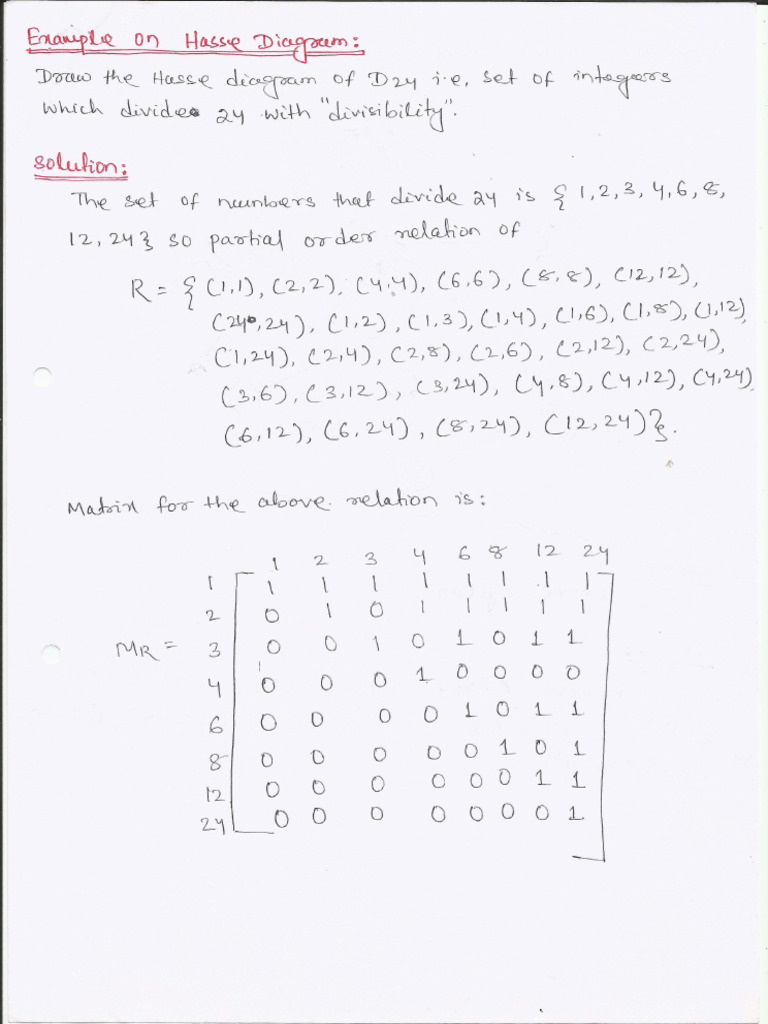 Example on Hasse Diagram:
Draw the Hasse diagram of D24 i.e, set of integers
which divides 24 with "divisibility".
Solution:
The set of numbers that divide 24 is { 1, 2, 3, 4, 6, 8,
12, 24} so partial order relation of
R = { (1,1), (2,2), (4,4), (6,6), (8,8), (12,12),
(24,24), (1,2), (1,3), (1,4), (1,6), (1,8), (1,12)
(1,24), (2,4), (2,8), (2,6), (2,12), (2,24),
(3,6), (3,12), (3,24), (4,8), (4,12), (4,24)
(6,12), (6,24), (8,24), (12,24)}.
Matrix for the above relation is:
1 2 3 4 6 8 12 24
1 1 1 1 1 1 1 1 1
2 0 1 0 1 1 1 1 1
MR = 3 0 0 1 0 1 0 1 1
4 0 0 0 1 0 0 0 0
6 0 0 0 0 1 0 1 1
8 0 0 0 0 0 1 0 1
12 0 0 0 0 0 0 1 1
24 0 0 0 0 0 0 0 1